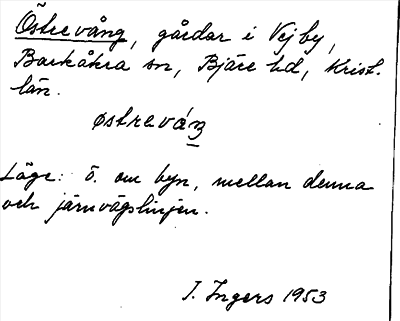 Östrevång, gårdar i Vejby,
Barkåkra sn, Bjäre hd, Krist.
län.
østreváꞑ
Läge: ö. om byn, mellan denna
och järnvägslinjen.
I. Ingers 1953